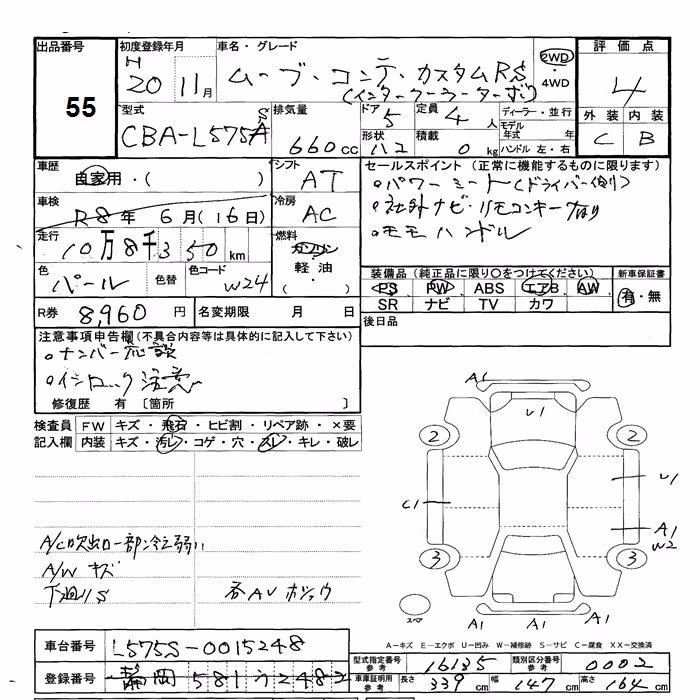 出品番号
55
初度登録年月
H 20 11月
車名・グレード
ムーブ・コンテ・カスタムRS
(インタークーラーターボ)
2WD
・4WD
評価点
4
外装 内装
C B
型式
CBA-L575A
排気量
660cc
ドア
5
形状
定員
4人
積載
0kg
ディーラー・並行
モデル年式 年
ハンドル 左・右
車歴
自家用・( )
シフト
AT
車検
R8年 6月(16日)
冷房
AC
走行
10万8千350km
燃料
ガソリン
軽油・
( )
色
パール
色替
色コード
W24
R券 8,960円
名変期限 月 日
セールスポイント(正常に機能するものに限ります)
○パワーシート(ドライバー側)
○社外ナビ・リモコンキー
○モモハンドル
装備品(純正品に限り○をつけてください)
新車保証書
PS PW ABS エアB AW
SR ナビ TV カワ
有・無
後日品
注意事項申告欄(不具合内容等は具体的に記入して下さい)
○ナンバー
注意
修復歴 有〔箇所 〕
検査員記入欄
FW キズ・飛石・ヒビ割・リペア跡・×要
内装 キズ・汚レ・コゲ・穴・スレ・キレ・破レ
A/C吹出口一部冷え弱い
A/W キズ
下廻りS
各AU ホシュウ
A1
U1
2 2
C1
U1
A1
W2
3 3
スペア
A1 A1
A1
A-キズ E-エクボ U-凹み W-補修跡 S-サビ C-腐食 XX-交換済
車台番号 L575S-0015248
登録番号 静岡 581 う 248
型式指定番号 参考 16135
類別区分番号 参考 0002
車庫証明用 参考 長さ 339cm 幅 147cm 高さ 164cm